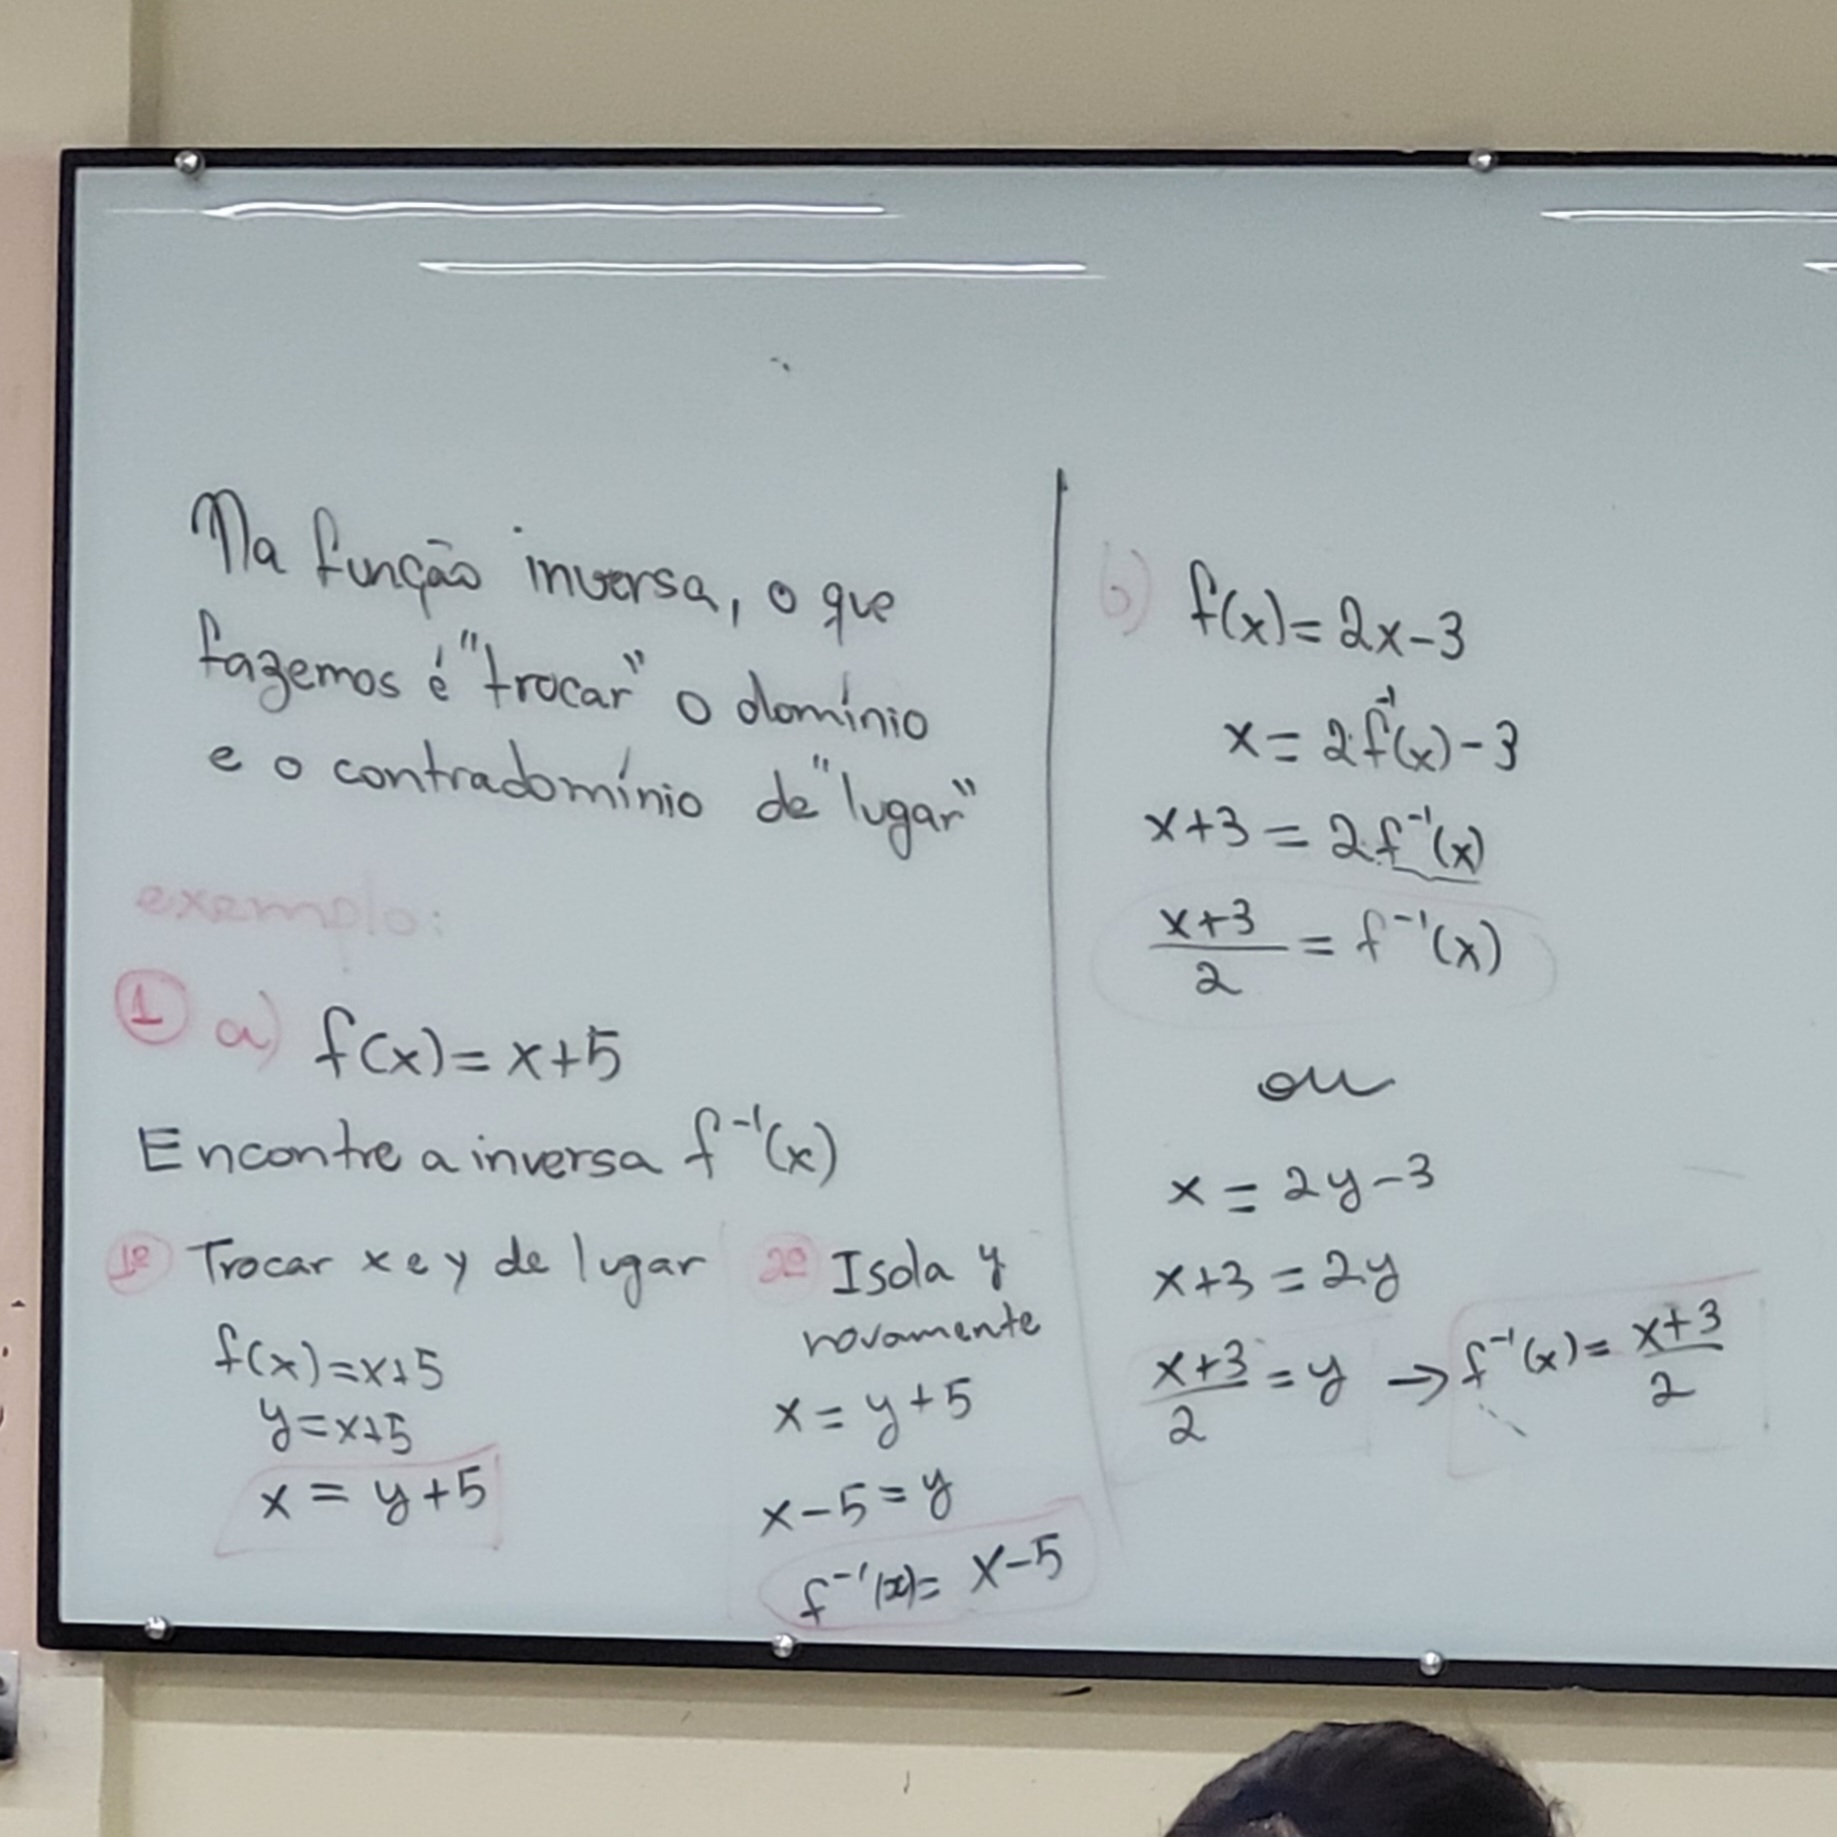 Na função inversa, o que
fazemos é "trocar" o domínio
e o contradomínio de "lugar"
exemplo:
① a) f(x) = x+5
Encontre a inversa f⁻¹(x)
1º Trocar x e y de lugar
f(x) = x+5
y = x+5
x = y+5
2º Isola y
novamente
x = y+5
x-5 = y
f⁻¹(x) = x-5
b) f(x) = 2x-3
x = 2.f⁻¹(x)-3
x+3 = 2.f⁻¹(x)
x+3/2 = f⁻¹(x)
ou
x = 2y-3
x+3 = 2y
x+3/2 = y → f⁻¹(x) = x+3/2